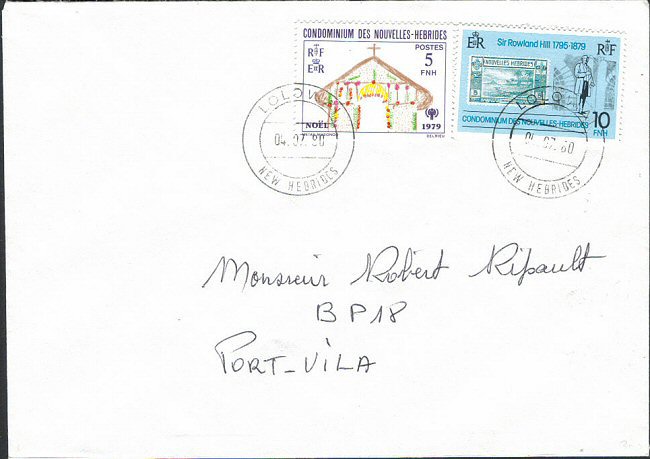 CONDOMINIUM DES NOUVELLES-HEBRIDES
RF
POSTES
5
FNH
EIIR
NOËL
1979
DELRIEU
EIIR
Sir Rowland Hill 1795-1879
RF
NOUVELLES HEBRIDES
5
5
CONDOMINIUM DES NOUVELLES-HEBRIDES
10
FNH
LOLOWAI
04.07.80
NEW HEBRIDES
LOLOWAI
04.07.80
NEW HEBRIDES
Monsieur Robert Ripault
BP18
PORT-VILA